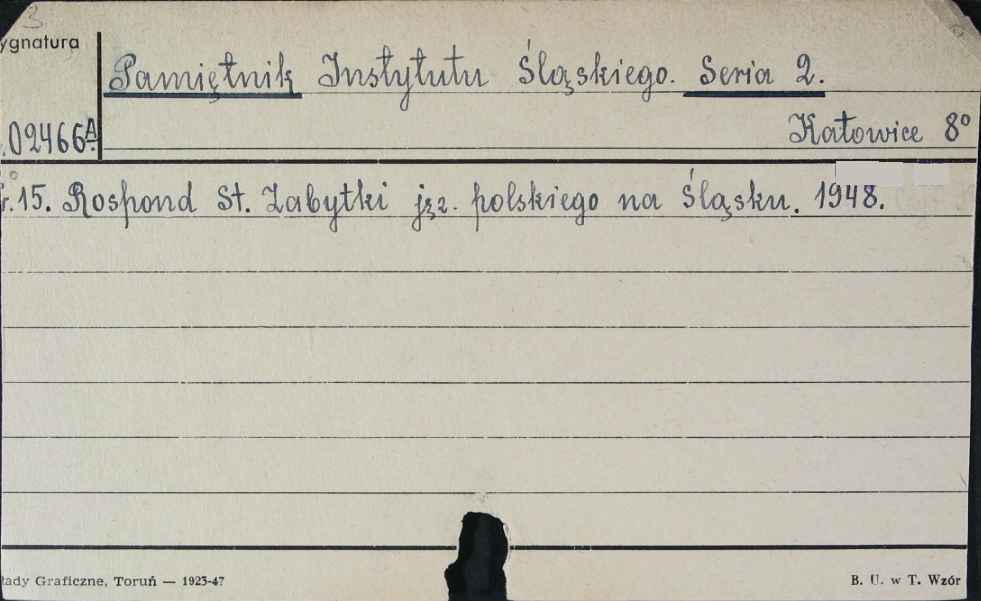 3
ygnatura
Pamiętnik Instytutu Śląskiego. Seria 2.
.02466A
Katowice 8°
r.15. Rospond St. Zabytki jęz. polskiego na Śląsku. 1948.
łady Graficzne, Toruń — 1923-47
B. U. w T. Wzór